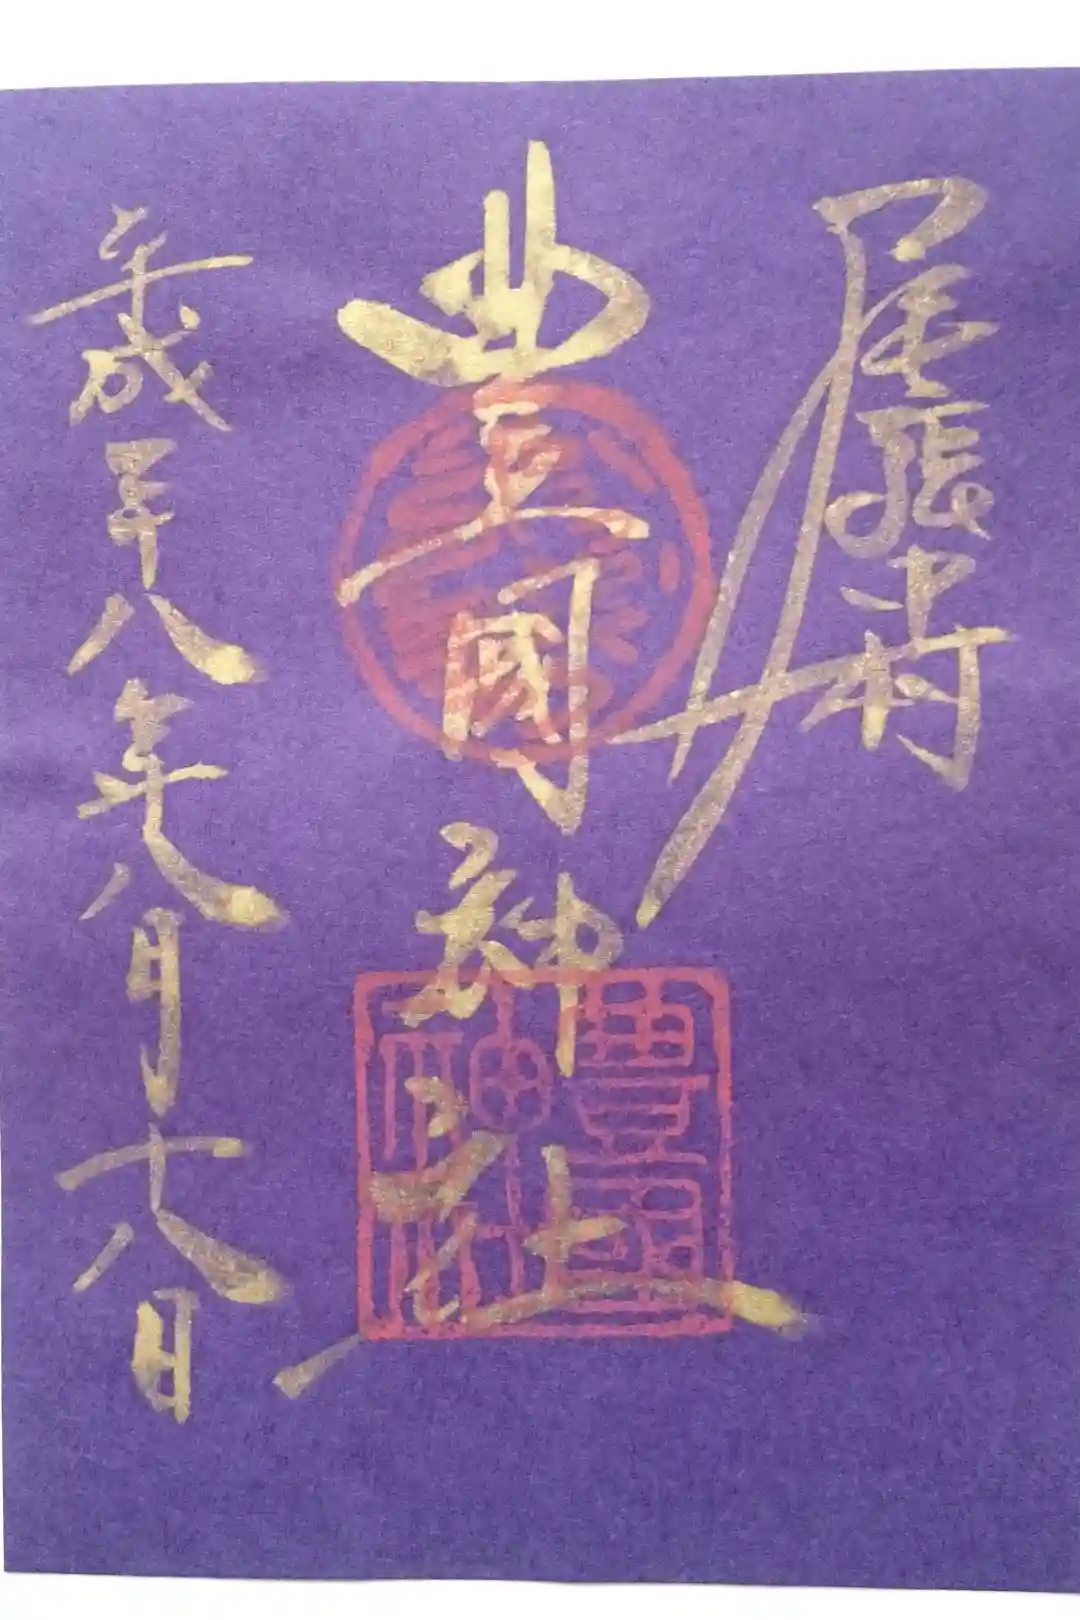 尾張中村
豊國神社
平成二十八年八月十八日
豊國神社